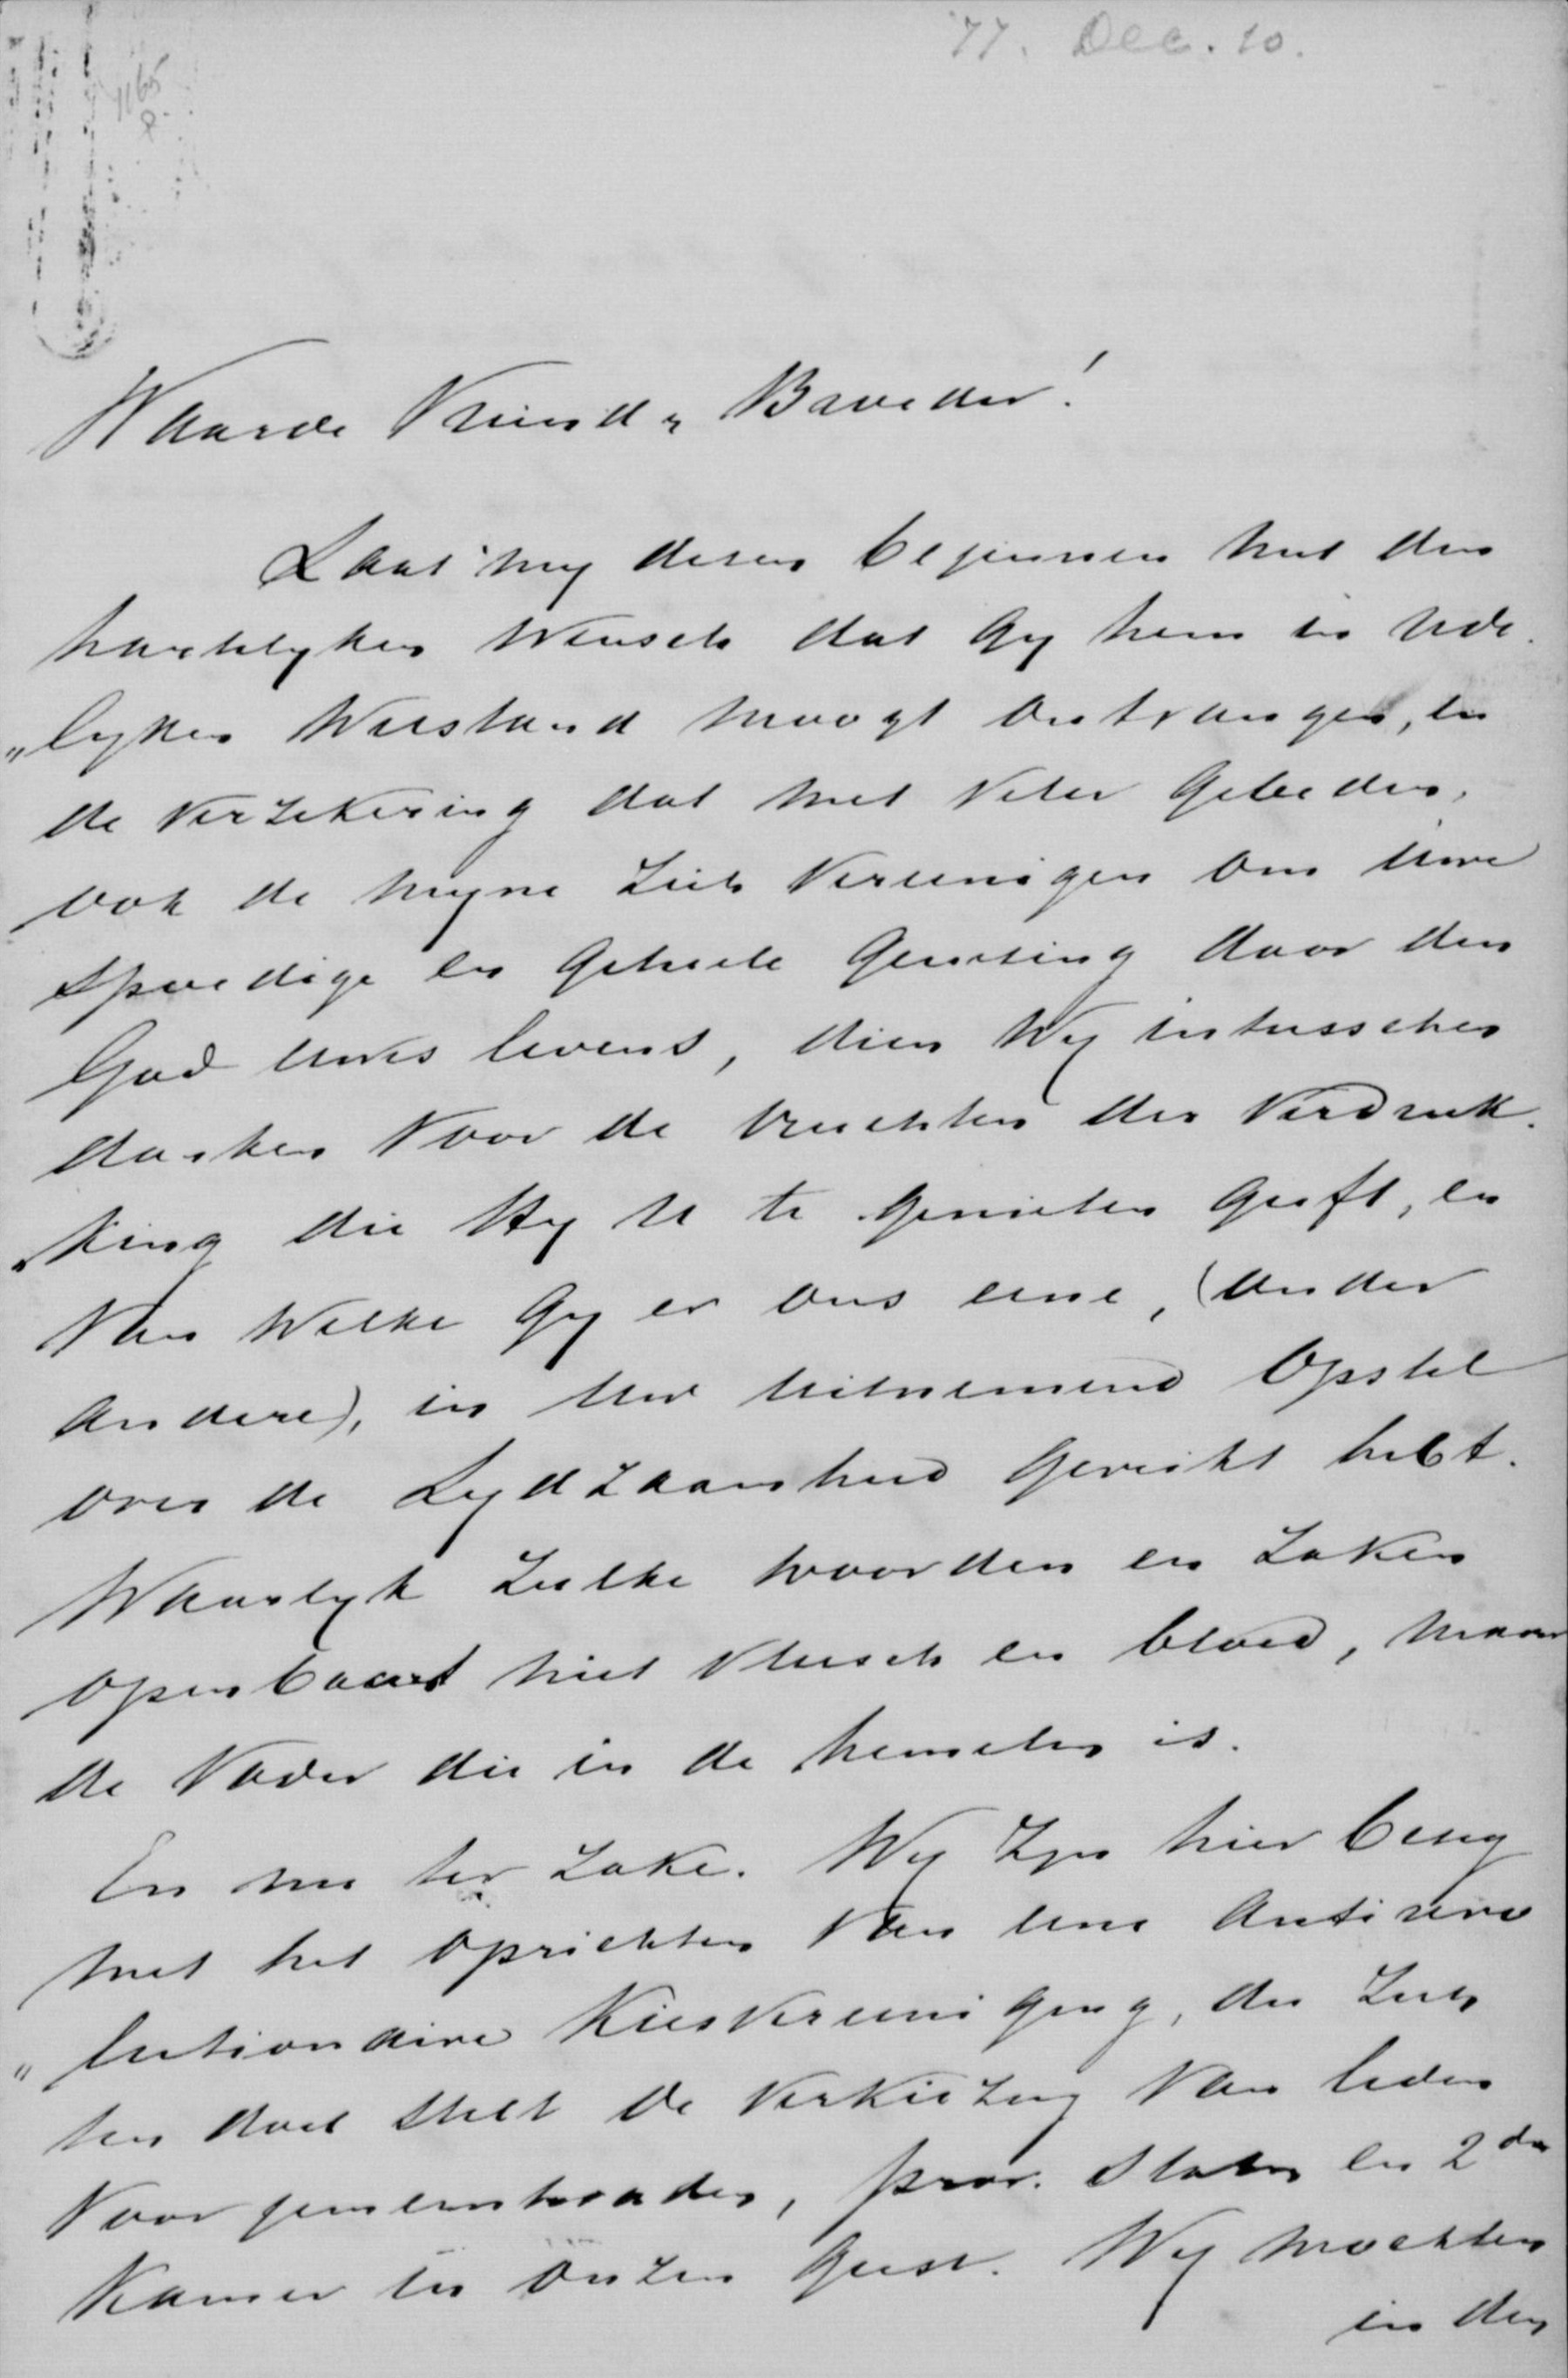 '77. Dec. 10.
1165
Waarde Vriend & Broeder!
Laat my dezen beginnen met den
hartelyken Wensch dat Gy hem in rede
„lyken Welstand moogt ontvangen, en
de verzekering dat met veler Gebeden,
ook de myne zich Vereenigen om uwe
spoedige en Geheele Genezing door den
God uwes levens, dien Wy intusschen
danken voor de vruchten der Verdruk
„king die Hy U te Genieten Geeft, en
van Welke Gy er ons eene, (onder
andere), in Uw uitnemend Opstel
over de Lydzaamheid Gereikt hebt.
Waarlyk zulke woorden en zaken
openbaart niet Vleesch en bloed, maar
de Vader die in de hemelen is.
En nu ter zake. Wy zyn hier bezig
met het oprichten van eene Antirevo
„lutionaire Kiesvereeniging, die zich
ten doel stelt de verkiezing van leden
voor gemeenteraden, prov. Staten en 2de
Kamer in onzen Geest. Wy mochten
in den